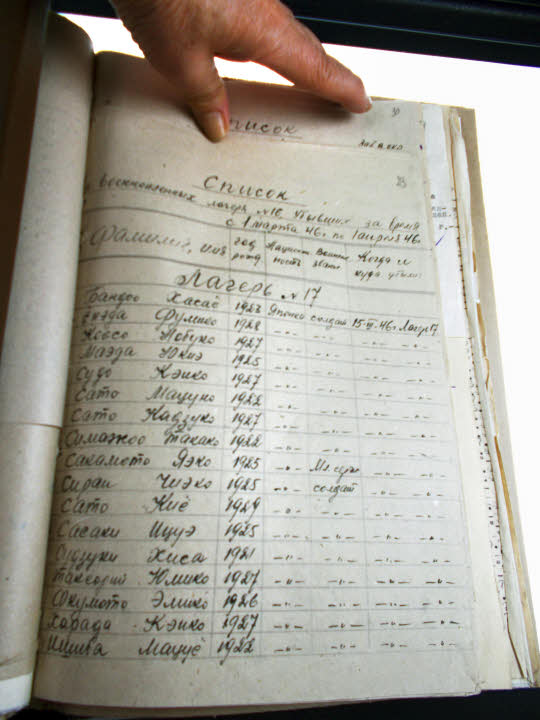 39
Список
38
Список
военнопленных лагеря №16 убывших за время
с 1 марта 46г. по 1 апреля 46.
Фамилия, имя год рожд. Националь ность Воинское звание Когда и куда убыл
Лагерь №17
Бандоо Хасаё 1923 Японка солдат 15-III-46г. Лагерь 17
Фумико 1928 -"- -"- -"- -"-
Кообо Нобуко 1927 -"- -"- -"- -"-
Маэда Юкиэ 1925 -"- -"- -"- -"-
Судо Кэико 1927 -"- -"- -"- -"-
Сато Мацуно 1922 -"- -"- -"- -"-
Сато Кадзуко 1927 -"- -"- -"- -"-
Такако 1922 -"- -"- -"- -"-
Сакамото Яэко 1925 -"- -"- -"-
Сираи Чиэко 1925 -"- солдат -"- -"-
Сато Киё 1929 -"- -"- -"- -"-
Сасаки Ицуэ 1925 -"- -"- -"- -"-
Судзуки Хиса 1921 -"- -"- -"- -"-
Юмико 1927 -"- -"- -"- -"-
Окумото Эмико 1926 -"- -"- -"- -"-
Харада Кэико 1927 -"- -"- -"- -"-
Мацуё 1922 -"- -"- -"- -"-